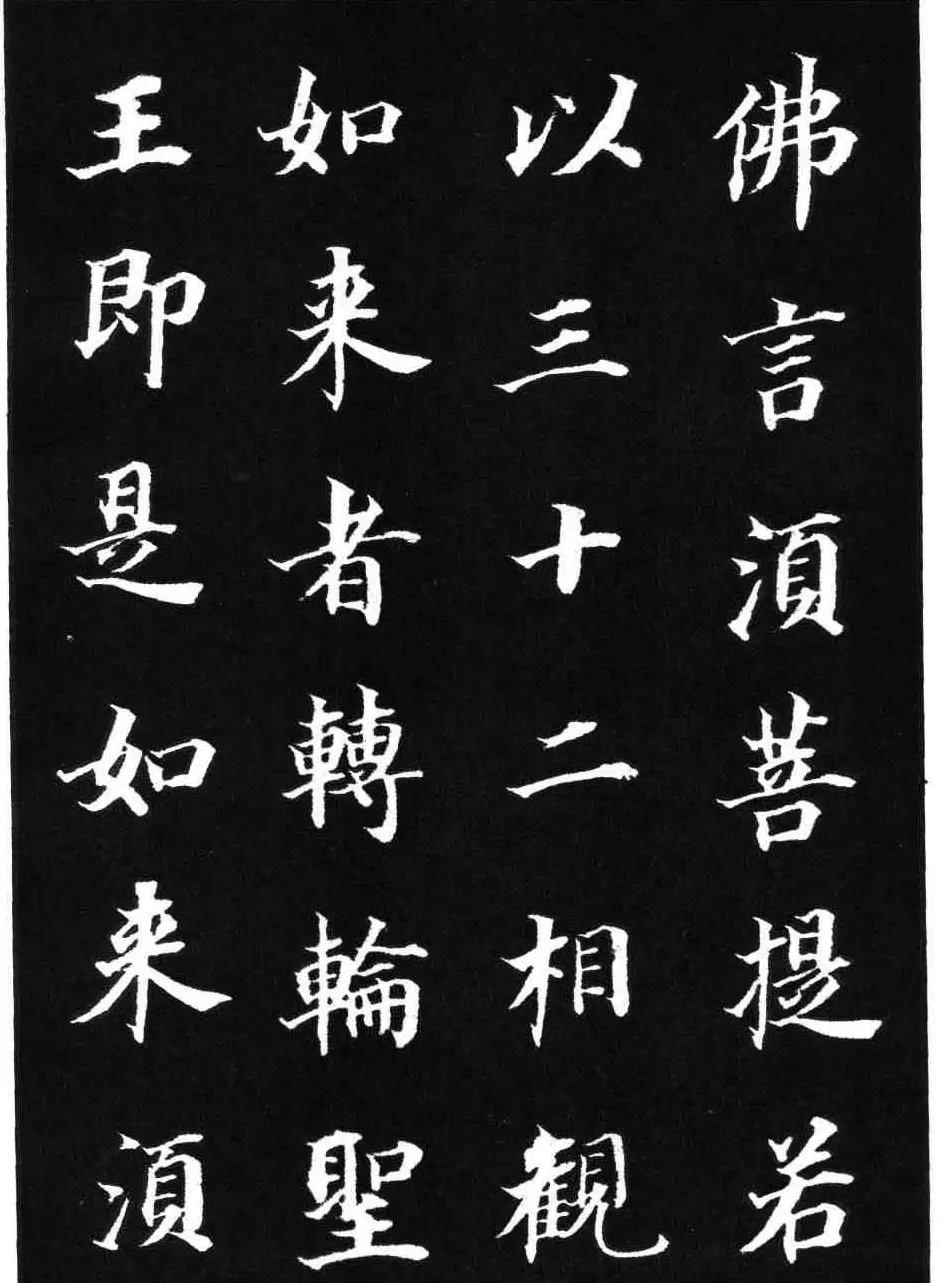 佛言湏菩提若
以三十二相觀
如来者轉輪聖
王即是如来湏